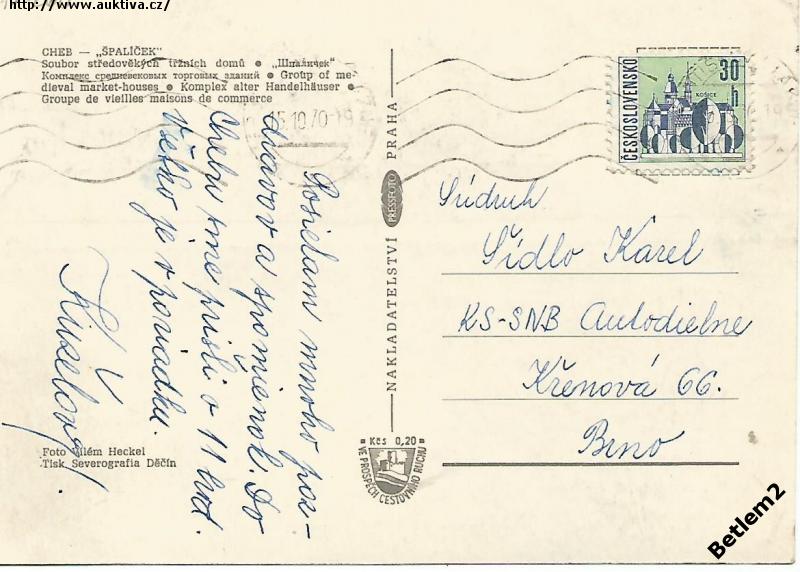 http://www.auktiva.cz/
CHEB — „ŠPALÍČEK"
Soubor středověkých tržních domů ● „Шпаличек"
Комплекс средневековых торговых зданий ● Group of me-
dieval market-houses ● Komplex alter Handelhäuser ●
Groupe de vieilles maisons de commerce
15.10.70-19
ČESKOSLOVENSKO
30 h
KOŠICE
Posielam mnoho poz-
dravov a spomienok. Do
Chebu sme prišli o 11 hod.
Všetko je v poriadku.
NAKLADATELSTVÍ PRESSFOTO PRAHA
Súdruh
Šídlo Karel
KS-SNB Autodielne
Křenová 66.
Brno
Kčs 0,20
VE PROSPĚCH CESTOVNÍHO RUCHU
Foto Vilém Heckel
Tisk Severografia Děčín
Betlem2